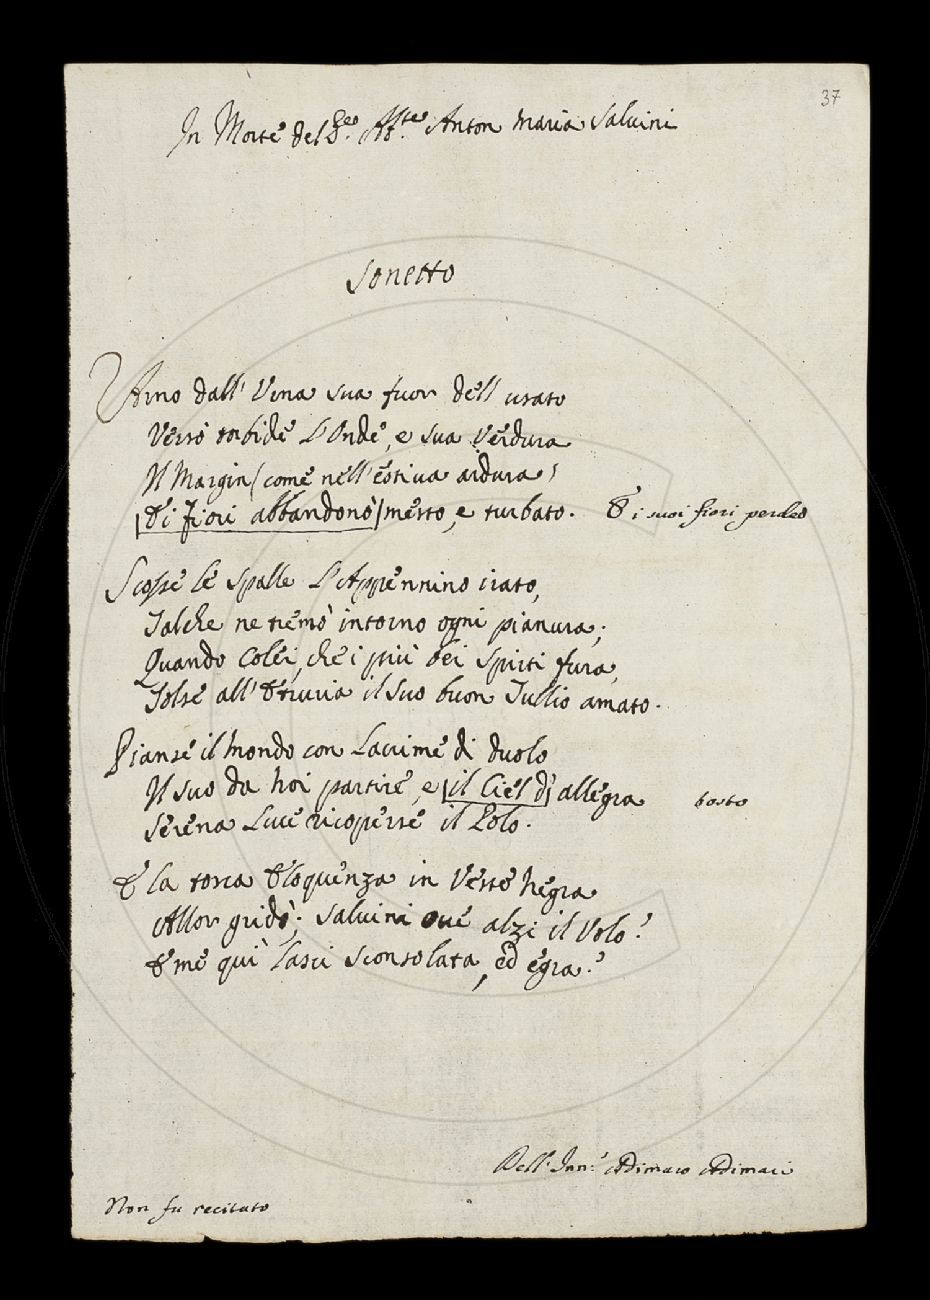 37
In Morte del S.re Ab.te Anton Maria Salvini
Sonetto
Arno dall' Urna sua fuor dell' usato
Versò torbide L'Onde, e sua Verdura
Il Margin (come nell' estiva ardura)
Ei Fiori abbandonò mesto, e turbato. E i suoi fiori perdeo
Scosse le Spalle L'Appennino irato,
Talche ne tremò intorno ogni pianura;
Quando Colei, che i più bei Spirti fura,
Tolse all' Etruria il suo buon Tullio amato.
Pianse il Mondo con Lacrime di duolo
Il suo da Noi partire, e il Ciel d'allegra tosto
Serena Luce ricoperse il Polo.
E la tosca Eloquenza in Veste Negra
Allor gridò; Salvini ove alzi il Volo?
E me quì lasci sconsolata, ed egra?
Dell' Inn.o Adimaro Adimari
Non fu recitato